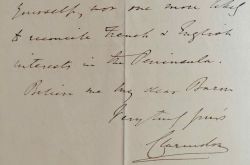 Yourself, nor one more likely
to reconcile French & English
interests in the Peninsula.
Believe me my dear Baron
Very truly yours
Clarendon